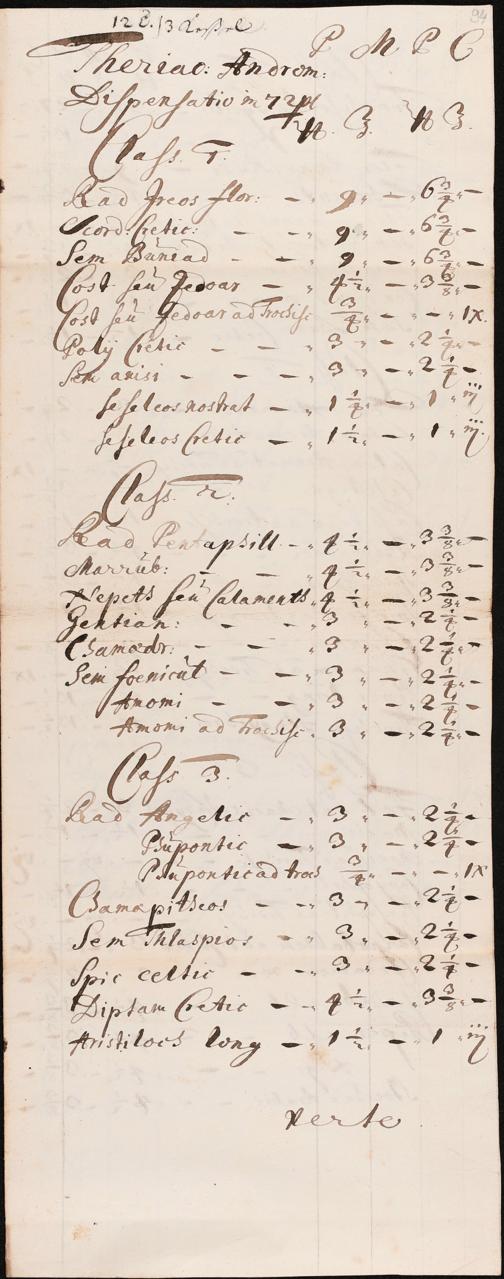 94
12 8./3
P M P C
Theriac: Androm:
Dispensatio in 72 pl
℔. ℥. ℔ ℥.
Class. 1.
Rad Jreos flor: — „ 9 „ — „ 6 3/4 —
Scord. Cretic: — — „ 9 „ — „ 6 3/4 —
Sem Buniad — — „ 9 „ — „ 6 3/4 —
Cost seu Zedoar — „ 4 1/2 „ — „ 3 3/8 —
Cost seu Zedoar ad Trochisc 3/4 „ — „ — „ ix.
Polij Cretic — — „ 3 „ — „ 2 1/4 —
Sem anisi — — — „ 3 „ — „ 2 1/4 —
seseleos nostrat — „ 1 1/2 „ — „ 1 „ iij
seseleos Cretic — „ 1 1/2 „ — „ 1 „ iij.
Class. 2.
Rad Pentaphill — „ 4 1/2 „ — „ 3 3/8 —
Marrub: — — „ 4 1/2 „ — „ 3 3/8 —
Nepeth seu Calamenth „ 4 1/2 „ — „ 3 3/8 —
Gentian: — — „ 3 „ — „ 2 1/4 —
Chamædr: — — „ 3 „ — „ 2 1/4 —
Sem foenicul — — „ 3 „ — „ 2 1/4 —
Amomi — — „ 3 „ — „ 2 1/4 —
Amomi ad Trochisc „ 3 „ — „ 2 1/4 —
Class 3.
Rad Angelic — „ 3 „ — „ 2 1/4 —
Rhupontic — „ 3 „ — „ 2 1/4 —
Rhupontic ad troch 3/4 „ — „ — „ ix
Chamæpitheos — „ 3 „ — „ 2 1/4 —
Sem Thlaspios — „ 3 „ — „ 2 1/4 —
Spic celtic — — „ 3 „ — „ 2 1/4 —
Diptam Cretic — „ 4 1/2 „ — „ 3 3/8 —
Aristiloch long — „ 1 1/2 „ — „ 1 „ iij
verte